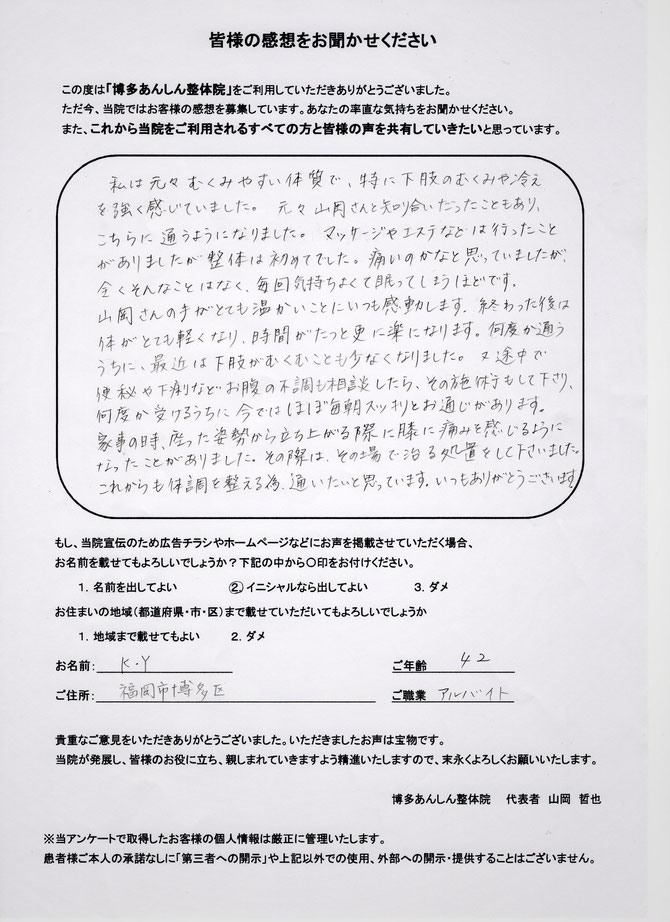 皆様の感想をお聞かせください
この度は「博多あんしん整体院」をご利用していただきありがとうございました。
ただ今、当院ではお客様の感想を募集しています。あなたの率直な気持ちをお聞かせください。
また、これから当院をご利用されるすべての方と皆様の声を共有していきたいと思っています。
私は元々むくみやすい体質で、特に下肢のむくみや冷え
を強く感じていました。 元々山岡さんと知り合いだったこともあり、
こちらに通うようになりました。 マッサージやエステなどは行ったこと
がありましたが整体は初めてでした。痛いのかなと思っていましたが、
全くそんなことはなく、毎回気持ちよくて眠ってしまうほどです。
山岡さんの手がとても温かいことにいつも感動します。終わった後は
体がとても軽くなり、時間がたつと更に楽になります。何度か通う
うちに、最近は下肢がむくむことも少なくなりました。又途中で
便秘や下痢などお腹の不調も相談したら、その施術もして下さり、
何度か受けるうちに今ではほぼ毎朝スッキリとお通じがあります。
家事の時、座った姿勢から立ち上がる際に膝に痛みを感じるように
なったことがありました。その際は、その場で治る処置をして下さいました。
これからも体調を整える為、通いたいと思っています。いつもありがとうございます。
もし、当院宣伝のため広告チラシやホームページなどにお声を掲載させていただく場合、
お名前を載せてもよろしいでしょうか？下記の中から〇印をお付けください。
1. 名前を出してよい ②イニシャルなら出してよい 3. ダメ
お住まいの地域（都道府県・市・区）まで載せていただいてもよろしいでしょうか
1. 地域まで載せてもよい 2. ダメ
お名前: K・Y ご年齢 42
ご住所: 福岡市博多区 ご職業 アルバイト
貴重なご意見をいただきありがとうございました。いただきましたお声は宝物です。
当院が発展し、皆様のお役に立ち、親しまれていきますよう精進いたしますので、末永くよろしくお願いいたします。
博多あんしん整体院 代表者 山岡 哲也
※当アンケートで取得したお客様の個人情報は厳正に管理いたします。
患者様ご本人の承諾なしに「第三者への開示」や上記以外での使用、外部への開示・提供することはございません。